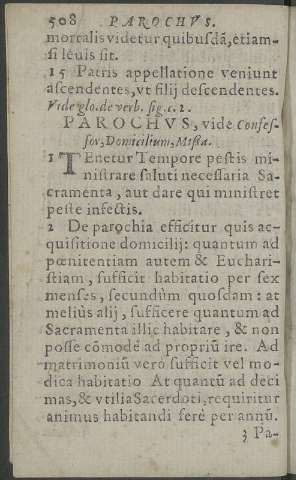 508 PAROCHVS.
mortalis videtur quibusdã, etiam-
si leuis sit.
15 Patris appellatione veniunt
ascendentes, vt filij descendentes.
Vide glo. de verb. sig. c. 2.
PAROCHVS, vide Confes-
sor, Domicilium, Missa.
1 TEnetur Tempore pestis mi-
nistrare saluti necessaria Sa-
cramenta, aut dare qui ministret
peste infectis.
2 De parochia efficitur quis ac-
quisitione domicilij: quantum ad
pœnitentiam autem & Euchari-
stiam, sufficit habitatio per sex
menses, secundùm quosdam: at
meliùs alij, sufficere quantum ad
Sacramenta illic habitare, & non
posse cõmodè ad propriũ ire. Ad
matrimoniũ verò sufficit vel mo-
dica habitatio At quantũ ad deci
mas, & vtilia Sacerdoti, requiritur
animus habitandi ferè per annũ.
3 Pa-